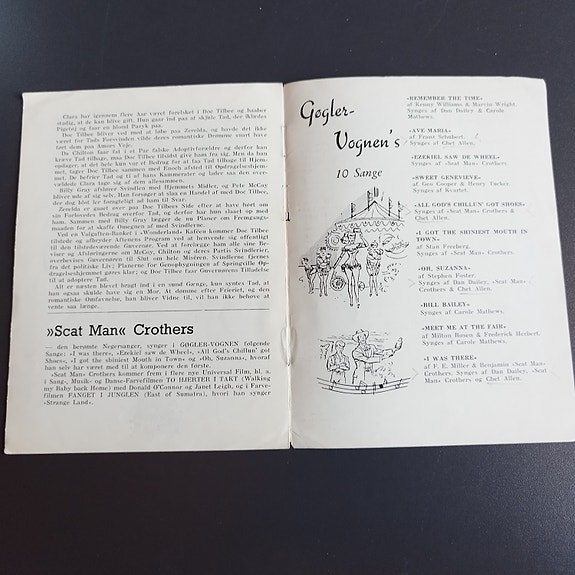 Clara har igennem flere Aar været forelsket i Doc Tilbee og haaber
stadig, at de kan blive gift. Hun gaar ind paa at skjule Tad, der iklædes
Pigetøj og faar en blond Paryk paa.
Doc Tilbee bliver ved med at løbe paa Zerelda, og havde det ikke
været for Tads Forsvinden vilde deres romantiske Drømme snart have
ført dem paa Amors Veje.
Da Chilton faar fat i et Par falske Adoptivforældre og derfor kan
kræve Tad tilbage, maa Doc Tilbee tilsidst give ham fri. Men da han
opdager, at det hele kun var et Bedrag for at faa Tad tilbage til Hjem-
met, tager Doc Tilbee sammen med Enoch afsted til Opdragelseshjem-
met. De befrier Tad og ti af hans Kammerater og lader saa den over-
vældede Clara tage sig af dem allesammen.
Billy Gray afslører Svindlen med Hjemmets Midler, og Pete McCoy
bliver ude af sig selv, han forsøger at slaa en Handel af med Doc Tilbee,
der dog blot ler foragteligt ad ham til Svar.
Zerelda er gaaet over paa Doc Tilbees Side efter at have hørt om
sin Forlovedes Bedrag overfor Tad, og derfor har hun slaaet op med
ham. Sammen med Billy Gray lægger de nu Planer om Fremgangs-
maaden for at skaffe Omegnen af med Svindlerne.
Ved en Valgaften-Banket i »Wonderland Kaféen kommer Doc Tilbee
tilstede og afbryder Aftenens Program ved at henvende sig offentligt
til den tilstedeværende Guvernør. Ved at forelægge ham alle sine Be-
viser og Afsløringerne om McCoy, Chilton og deres Partis Svindlerier,
overbevises Guvernøren til Slut om hele Miséren. Svindlerne fjernes
fra det politiske Liv; Planerne for Genopbygningen af Springville Op-
dragelseshjemmet gøres klar; og Doc Tilbee faar Guvernørens Tilladelse
til at adoptere Tad.
Alt er næsten blevet bragt ind i en sund Gænge, kun syntes Tad, at
han ogsaa skulde have sig en Mor. At dømme efter Frieriet, og den
romantiske Omfavnelse, han bliver Vidne til, vil han ikke behøve at
vente saa længe.
»Scat Man« Crothers
— den berømte Negersanger, synger i GØGLER-VOGNEN følgende
Sange: »I was there«, »Ezekiel saw de Wheel«, »All God's Chillun' got
Shoes«, »I got the shiniest Mouth in Town« og »Oh, Suzanna«, hvoraf
han selv har været med til at komponere den første.
»Scat Man« Crothers kommer frem i flere nye Universal Film, bl. a.
i Sang-, Musik- og Danse-Farvefilmen TO HJERTER I TAKT (Walking
my Baby back Home) med Donald O'Connor og Janet Leigh, og i Farve-
filmen FANGET I JUNGLEN (East of Sumatra), hvori han synger
»Strange Land«.
Gøgler-
Vognen's
10 Sange
»REMEMBER THE TIME«
af Kenny Williams & Marvin Wright.
Synges af Dan Dailey & Carole
Mathews.
»AVE MARIA«
af Franz Schubert.
Synges af Chet Allen.
»EZEKIEL SAW DE WHEEL«
Synges af »Scat Man« Crothers.
»SWEET GENEVIEVE«
af Geo Cooper & Henry Tucker.
Synges af Kvartet.
»ALL GOD'S CHILLUN' GOT SHOES«
Synges af »Scat Man« Crothers &
Chet Allen.
»I GOT THE SHINIEST MOUTH IN
TOWN«
af Stan Freeberg.
Synges af »Scat Man« Crothers.
»OH, SUZANNA«
af Stephen Foster.
Synges af Dan Dailey, »Scat Man«
Crothers & Chet Allen.
»BILL BAILEY«
Synges af Carole Mathews.
»MEET ME AT THE FAIR«
af Milton Rosen & Frederick Herbert.
Synges af Carole Mathews.
»I WAS THERE«
af F. E. Miller & Benjamin »Scat Man«
Crothers. Synges af Dan Dailey, »Scat
Man« Crothers og Chet Allen.